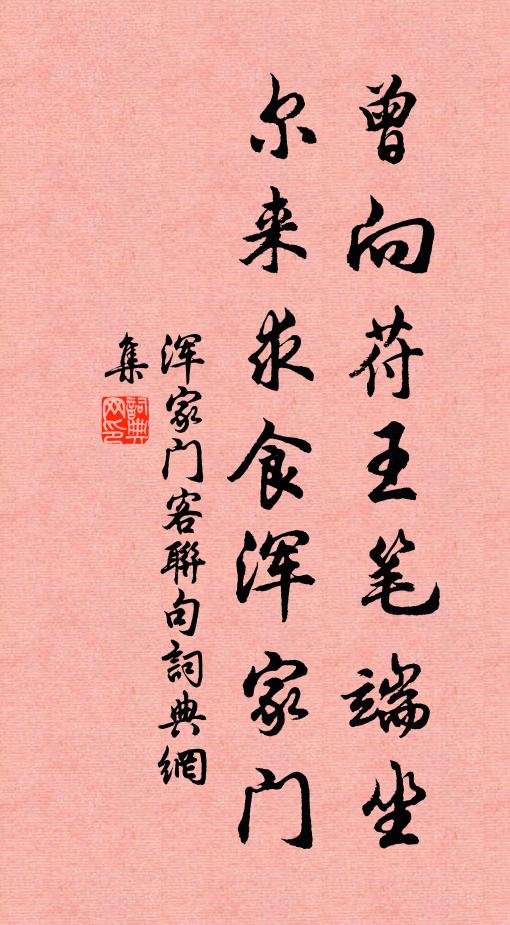 曾向苻王笔端坐
尔来求食浑家门
浑家门客聯句詞典網
集
詞典
网印